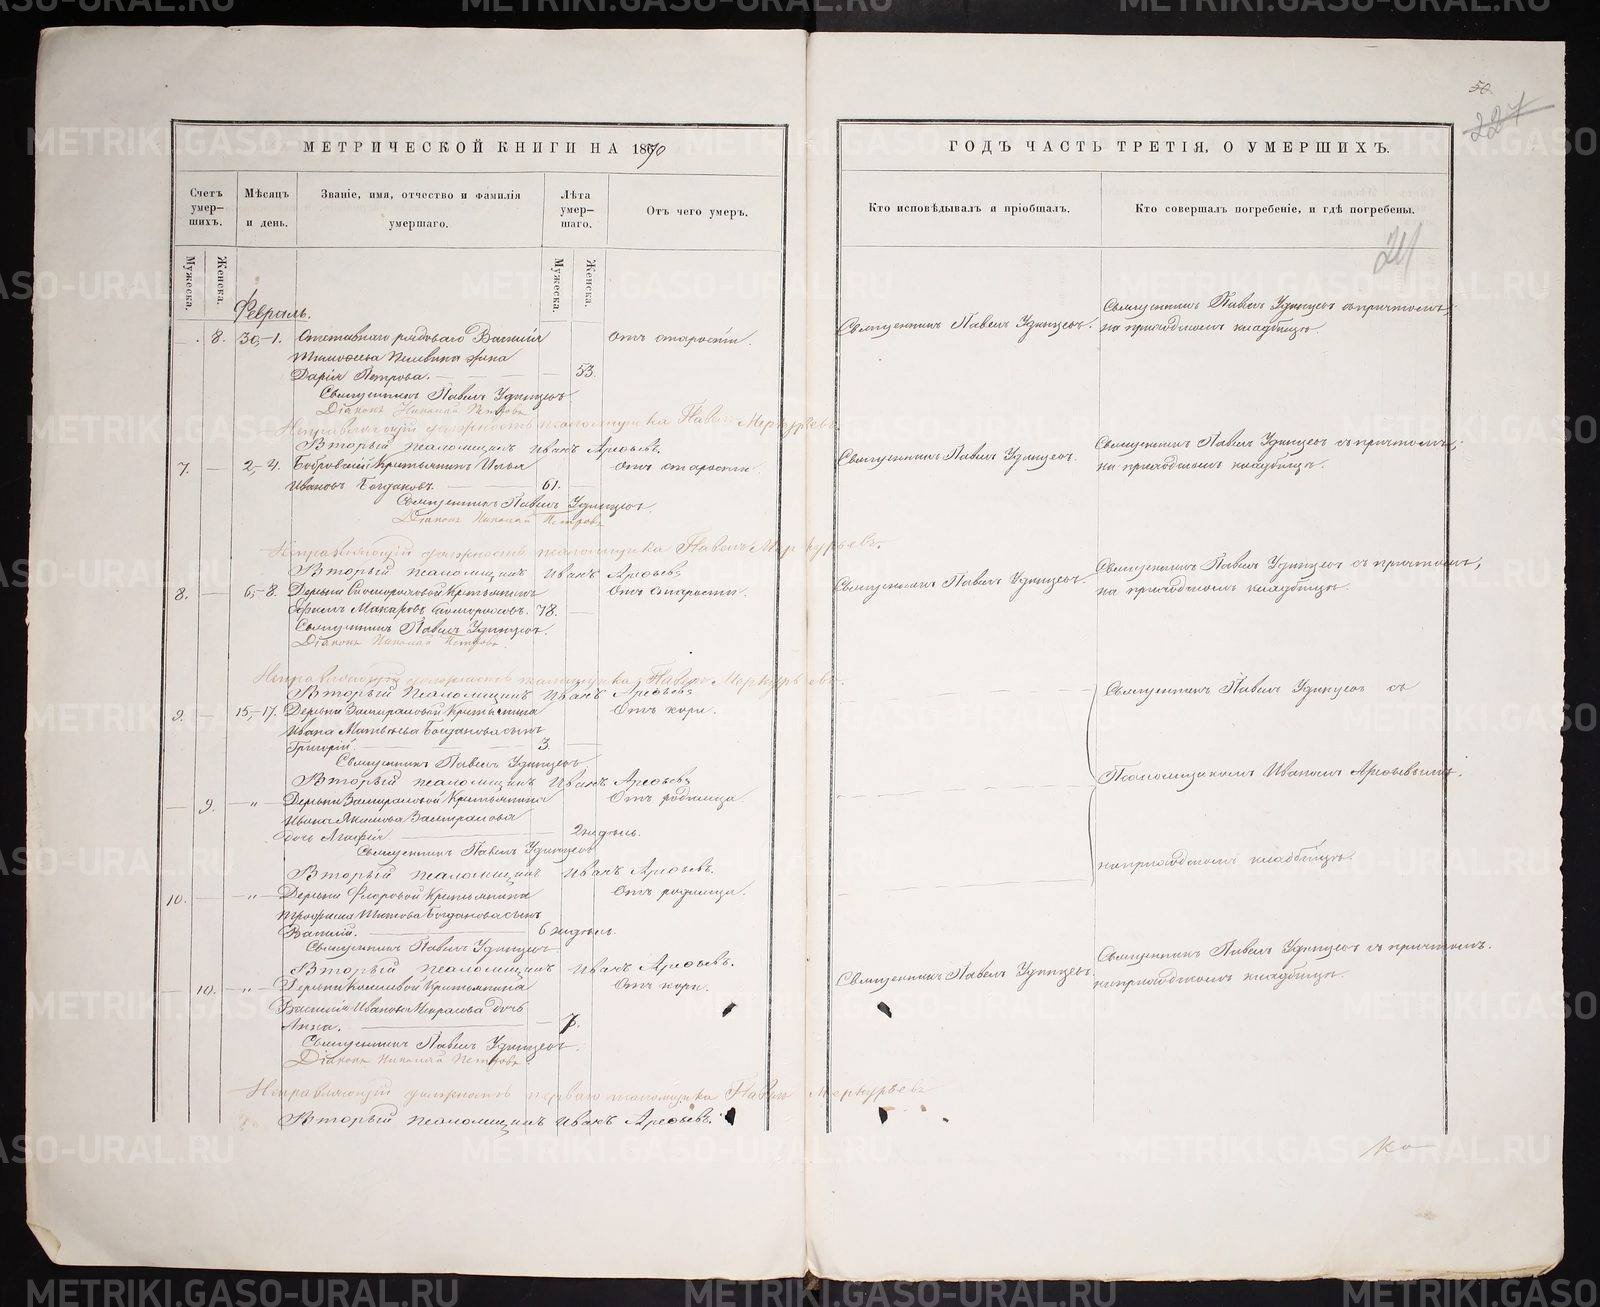 50
227
МЕТРИЧЕСКОЙ КНИГИ НА 1870
ГОДЪ ЧАСТЬ ТРЕТІЯ, О УМЕРШИХЪ.
Счетъ умер-
шихъ.
Мѣсяцъ
и день.
Званіе, имя, отчество и фамилія
умершаго.
Лѣта
умер-
шаго.
Отъ чего умеръ.
Кто исповѣдывалъ и пріобщалъ.
Кто совершалъ погребеніе, и гдѣ погребены.
Мужеска.
Женска.
Мужеска.
Женска.
Февраль.
8. 30,-1. Отставнаго рядоваго Василія
жена
Дарія Петрова. 53.
Отъ старости.
Священникъ Павелъ Удинцевъ.
Священникъ Павелъ Удинцевъ съ причтомъ,
на приходскомъ кладбищѣ.
Священникъ Павелъ Удинцевъ
Діаконъ Николай Петровъ
Исправляющій должность псаломщика Павелъ Меркурьевъ
Вторый псаломщикъ Иванъ Арефьевъ.
7. 2,-4. Бобровскій Крестьянинъ Илья
Ивановъ Богдановъ. 61.
Отъ старости.
Священникъ Павелъ Удинцевъ.
Священникъ Павелъ Удинцевъ съ причтомъ,
на приходскомъ кладбищѣ.
Священникъ Павелъ Удинцевъ.
Діаконъ Николай Петровъ
Исправляющій должность псаломщика Павелъ Меркурьевъ.
Вторый псаломщикъ Иванъ Арефьевъ
8. 6,-8. Деревни Крестьянинъ
Ефимъ Макаровъ 78.
Отъ старости.
Священникъ Павелъ Удинцевъ
Священникъ Павелъ Удинцевъ съ причтомъ,
на приходскомъ кладбищѣ.
Священникъ Павелъ Удинцевъ.
Діаконъ Николай Петровъ
Исправляющій должность псаломщика Павелъ Меркурьевъ.
Вторый Псаломщикъ Иванъ Арефьевъ
9. 15,-17. Деревни Замираловой Крестьянина
Ивана Матвѣева Богданова сынъ
Григорій. 3.
Отъ кори.
Священникъ Павелъ Удинцевъ съ
Священникъ Павелъ Удинцевъ
Вторый псаломщикъ Иванъ Арефьевъ
Псаломщикомъ Иваномъ Арефьевымъ.
9. -"- Деревни Замираловой Крестьянина
Ивана Акимова Замиралова
дочь Агафія 2 недѣль.
Отъ родимца
Священникъ Павелъ Удинцевъ
на приходскомъ кладбищѣ.
Вторый псаломщикъ Иванъ Арефьевъ.
10. -"- Деревни Флоровой Крестьянина
Трофима Титова Богданова сынъ
Василій. 6 недѣль.
Отъ родимца.
Священникъ Павелъ Удинцевъ
Вторый псаломщикъ Иванъ Арефьевъ.
10. -"- Деревни Крестьянина
Василія Иванова дочь
Анна. 7.
Отъ кори.
Священникъ Павелъ Удинцевъ.
Священникъ Павелъ Удинцевъ съ причтомъ.
на приходскомъ кладбищѣ.
Священникъ Павелъ Удинцевъ.
Діаконъ Николай Петровъ
Исправляющій должность перваго псаломщика Павелъ Меркурьевъ
Вторый псаломщикъ Иванъ Арефьевъ.
METRIKI.GASO-URAL.RU